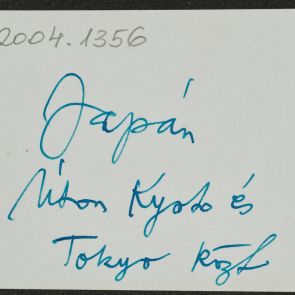 2004.1356
Japán
Úton Kyoto és
Tokyo közt